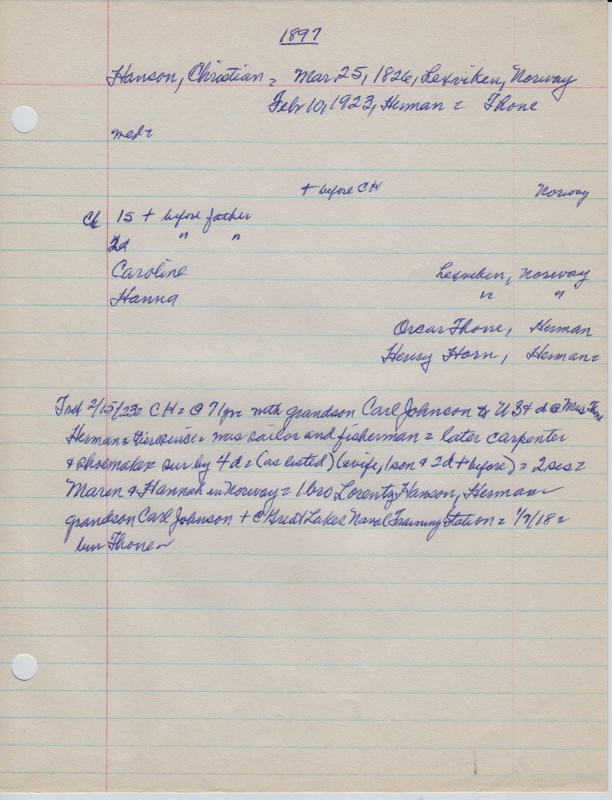 1897
Hanson, Christian = Mar. 25, 1826, Lexviken, Norway
Feb 10, 1923, Herman = Thone
med =
+ before CH Norway
Ch 15 + before father
2d " "
Caroline Lexviken, Norway
Hanna " "
Oscar Thone, Herman
Henry Horn, Herman =
2/15/23 = CH = @ 71 yrs with grandson Carl Johnson to US + d @ Mrs. Thone
Herman = = was sailor and fisherman = later carpenter
& shoemaker = sur by 4 d = (as listed) (wife, 1 son & 2d + before) = 2 sis =
Maren & Hannah in Norway = 1 bro Lorentz Hanson, Herman
grandson Carl Johnson + @ Great Lakes Naval Training Station = 1/7/18 =
bur Thone